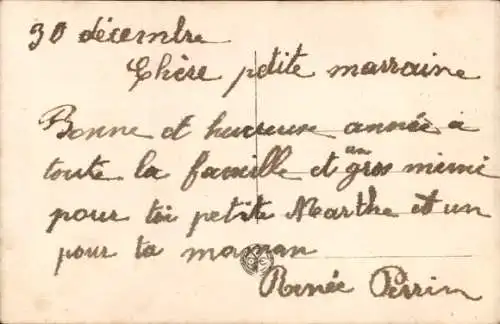 30 décembre
Chère petite marraine
Bonne et heureuse année à
toute la famille et un gros mimi
pour toi petite Marthe et un
pour ta maman
Renée Perrin